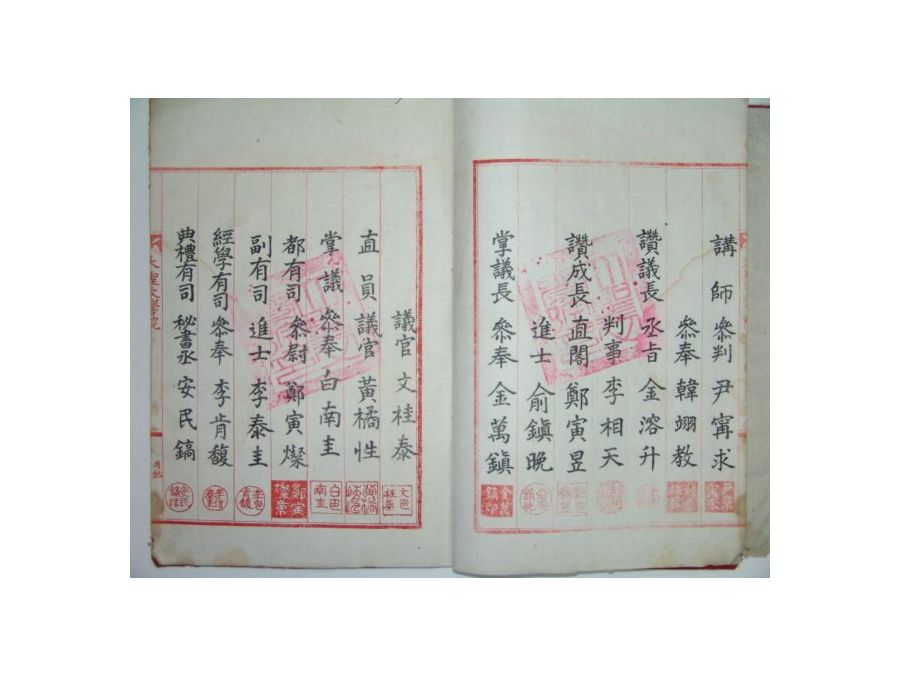 講師 叅判 尹甯求
叅奉 韓翊敎
讚議長 丞旨 金溶升
判事 李相天
讚成長 直閣 鄭寅昱
進士 俞鎭晩
掌議長 叅奉 金萬鎭
議官 文桂泰
直員 議官 黃橘性
掌議 叅奉 白南圭
都有司 叅尉 鄭寅燦
副有司 進士 李泰圭
經學有司 叅奉 李肯馥
典禮有司 秘書丞 安民鎬
大聖文學院
用紙
文桂泰
白南圭